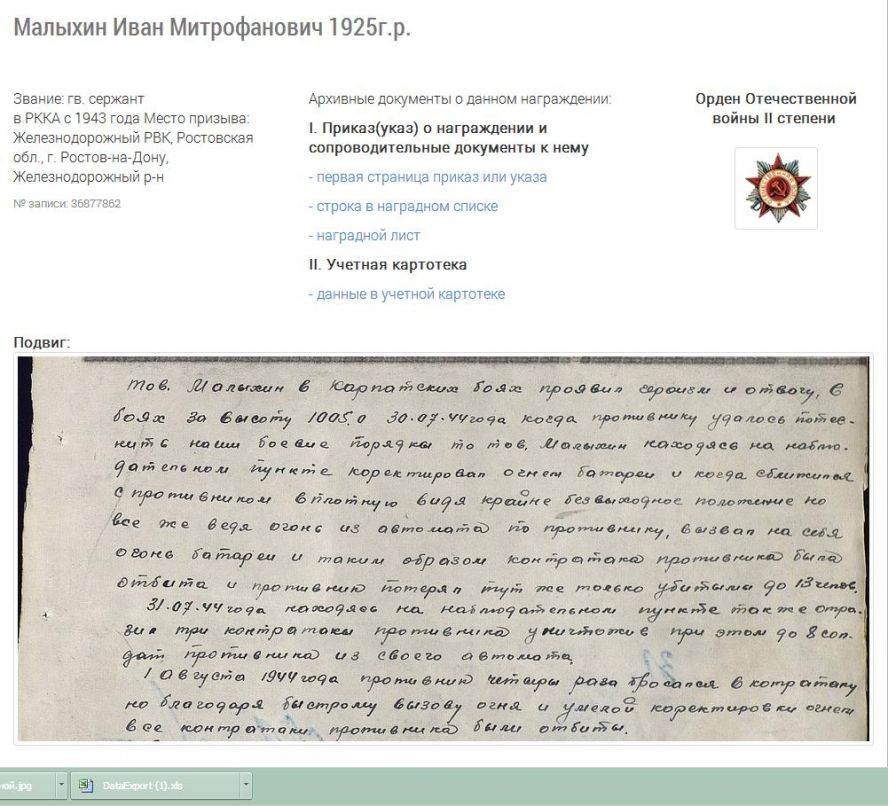 Малыхин Иван Митрофанович 1925г.р.
Звание: гв. сержант
в РККА с 1943 года Место призыва:
Железнодорожный РВК, Ростовская
обл., г. Ростов-на-Дону,
Железнодорожный р-н
№ записи: 36877862
Архивные документы о данном награждении:
I. Приказ(указ) о награждении и
сопроводительные документы к нему
- первая страница приказ или указа
- строка в наградном списке
- наградной лист
II. Учетная картотека
- данные в учетной картотеке
Орден Отечественной
войны II степени
Подвиг:
Тов. Малыхин в Карпатских боях проявил героизм и отвагу, в
боях за высоту 1005.0 30.07.44 года когда противнику удалось потес-
нить наши боевые порядки то тов. Малыхин находясь на наблю-
дательном пункте коректировал огнем батареи и когда сблизился
с противником вплотную видя крайне безвыходное положение но
все же ведя огонь из автомата по противнику, вызвал на себя
огонь батареи и таким образом контратака противника была
отбита и противник потерял тут же только убитыми до 13 челов.
31.07.44 года находясь на наблюдательном пункте также отра-
зил три контратаки противника уничтожив при этом до 8 сол-
дат противника из своего автомата.
1 августа 1944 года противник четыры раза бросался в котратаку
но благодаря быстрому вызову огня и умелой коректировки огнем
все контратаки противника были отбиты.
ной.jpg
DataExport (1).xls